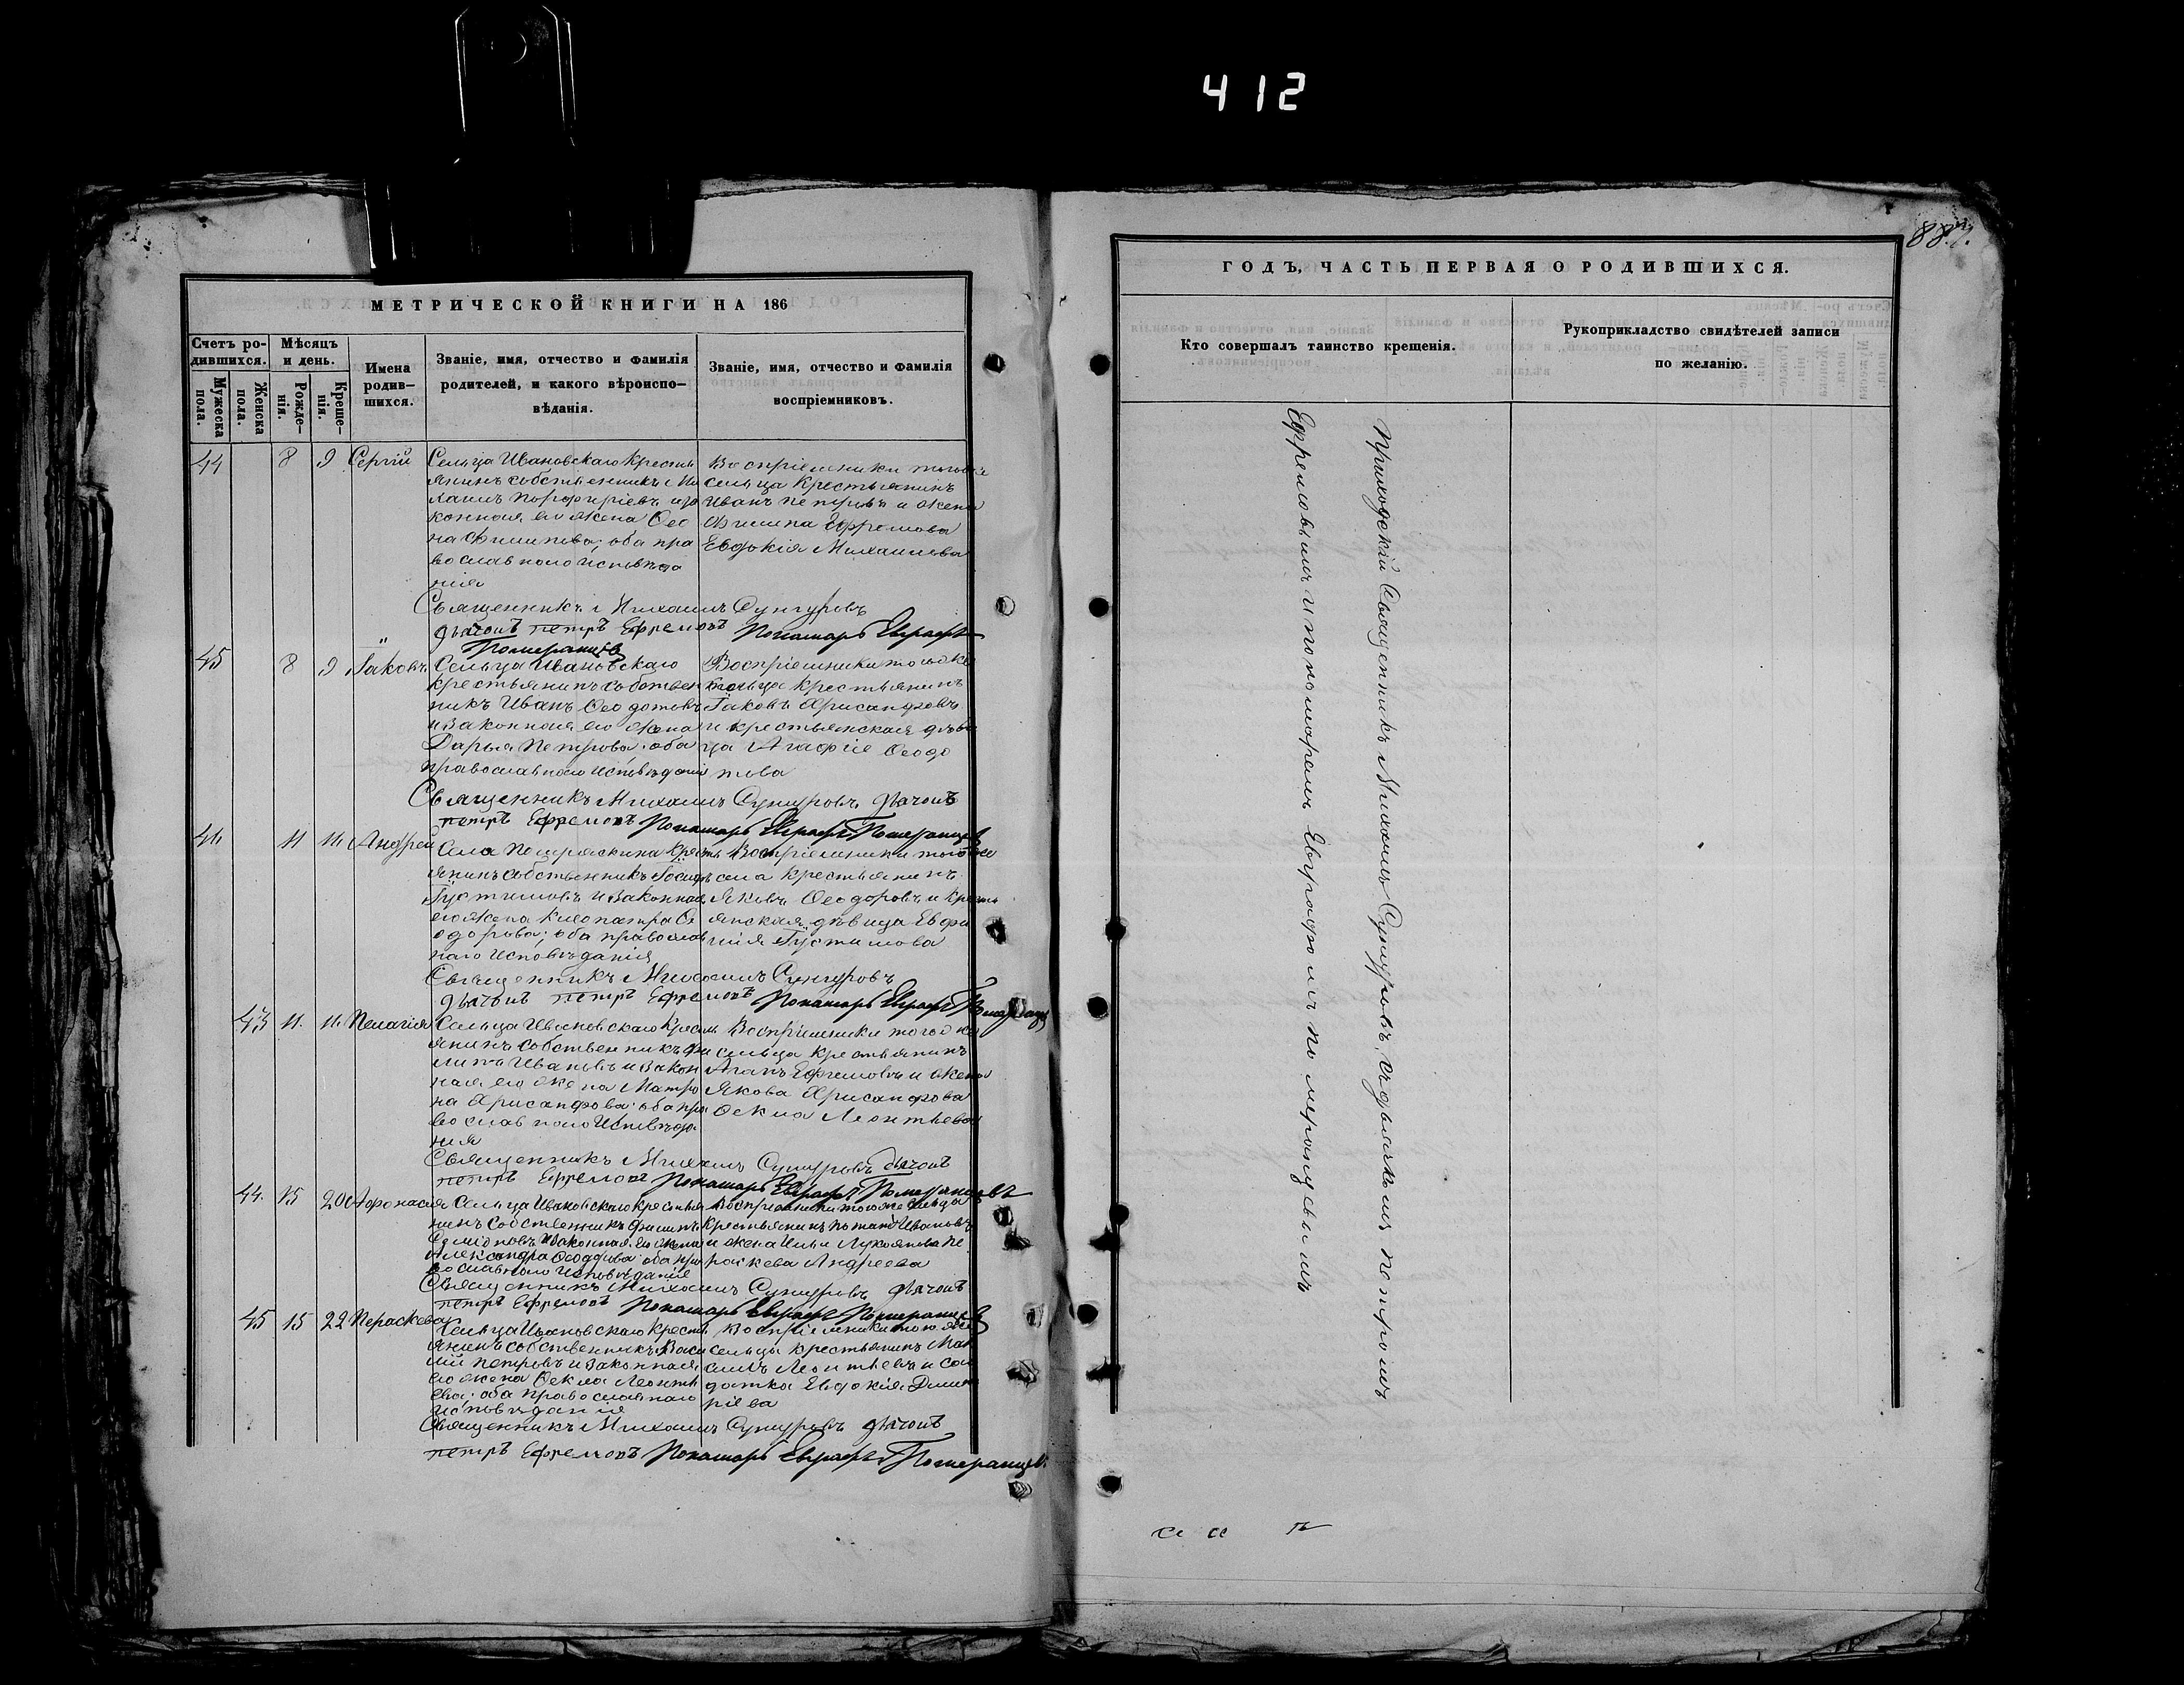 412
882.
МЕТРИЧЕСКОЙ КНИГИ НА 186
Счетъ ро-
дившихся.
Мужеска
пола.
Женска
пола.
Мѣсяцъ
и день.
Рожде-
нія.
Креще-
нія.
Имена
родив-
шихся.
Званіе, имя, отчество и фамилія
родителей, и какого вѣроиспо-
вѣданія.
Званіе, имя, отчество и фамилія
воспріемниковъ.
44 8 9 Сергій
Сельца Ивановскаго Кресть
янинъ собственникъ Ми
хаилъ Порфиріевъ и за
конная его жена Ѳео
на Филипова; оба пра
вославного исповѣда
нія
Воспріемники тогоже
сельца Крестьянинъ
Иванъ Петровъ и жена
Филипа Ефремова
Евдокія Михаилова
Священникъ Михаилъ Сунгуровъ
дьячокъ петръ Ефремовъ Пономарь Евграфъ
Померанцевъ
45 8 9 Іаковъ
Сельца Ивановскаго
крестьянинъ собствен
никъ Иванъ Ѳеодотовъ
и законная его жена
Дарья Петрова; оба
православного исповѣданія
Воспріемники тогоже
сельца крестьянинъ
Іаковъ Хрисанфовъ
и крестьянская дѣви
ца Агафія Ѳеодо
това
Священникъ Михаилъ Сунгуровъ дьячокъ
петръ Ефремовъ Пономарь Евграфъ Померанцевъ
46 11 11 Андрей
Села Потряскина Кресть
янинъ собственникъ Іосифъ
Іустиновъ и законная
его жена Клеопатра Ѳе
одорова; оба православ
наго исповѣданія
Воспріемники тогоже
села крестьянинъ
Яковъ Ѳеодоровъ и кресть
янская дѣвица Евфи
мія Іустинова
Священникъ Михаилъ Сунгуровъ
дьячокъ петръ Ефремовъ Пономарь Евграфъ Померанцевъ
43 11. 11. Пелагія
Сельца Ивановскаго Кресть
янинъ собственникъ Фи
липъ Ивановъ и закон
ная его жена Матро
на Хрисанфова; оба пра
вославного исповѣда
нія
Воспріемники тогоже
сельца крестьянинъ
Агапъ Ефремовъ и жена
Якова Хрисанфова
Ѳекла Леонтьева
Священникъ Михаилъ Сунгуровъ дьячокъ
петръ Ефремовъ Пономарь Евграфъ Померанцевъ
44. 15 20 Афонасія
Сельца Ивановскаго крестья
нинъ собственникъ Филипъ
Семіоновъ и законная его жена
Александра Ѳеодорова; оба пра
вославного исповѣданія
Воспріемники тогоже сельца
крестьянинъ Потапъ Ивановъ
и жена Ильи Лукоянова Пе
раскева Андреева
Священникъ Михаилъ Сунгуровъ дьячокъ
петръ Ефремовъ Пономарь Евграфъ Померанцевъ
45 15 22 Пераскева
Сельца Ивановскаго Кресть
янинъ собственникъ Васи
лій Петровъ и законная
его жена Ѳекла Леонть
ева; оба православнаго
исповѣданія
Воспріемники тогоже
сельца крестьянинъ Мак
симъ Леонтьевъ и сол
датка Евдокія Димит
ріева
Священникъ Михаилъ Сунгуровъ дьячокъ
петръ Ефремовъ Пономарь Евграфъ Померанцевъ.
ГОДЪ, ЧАСТЬ ПЕРВАЯ О РОДИВШИХСЯ.
Кто совершалъ таинство крещенія.
Рукоприкладство свидѣтелей записи
по желанію.
Приходскій Священникъ Михаилъ Сунгуровъ, съ дьячкомъ Петромъ
Ефремовымъ и пономаремъ Евграфомъ Померанцевымъ